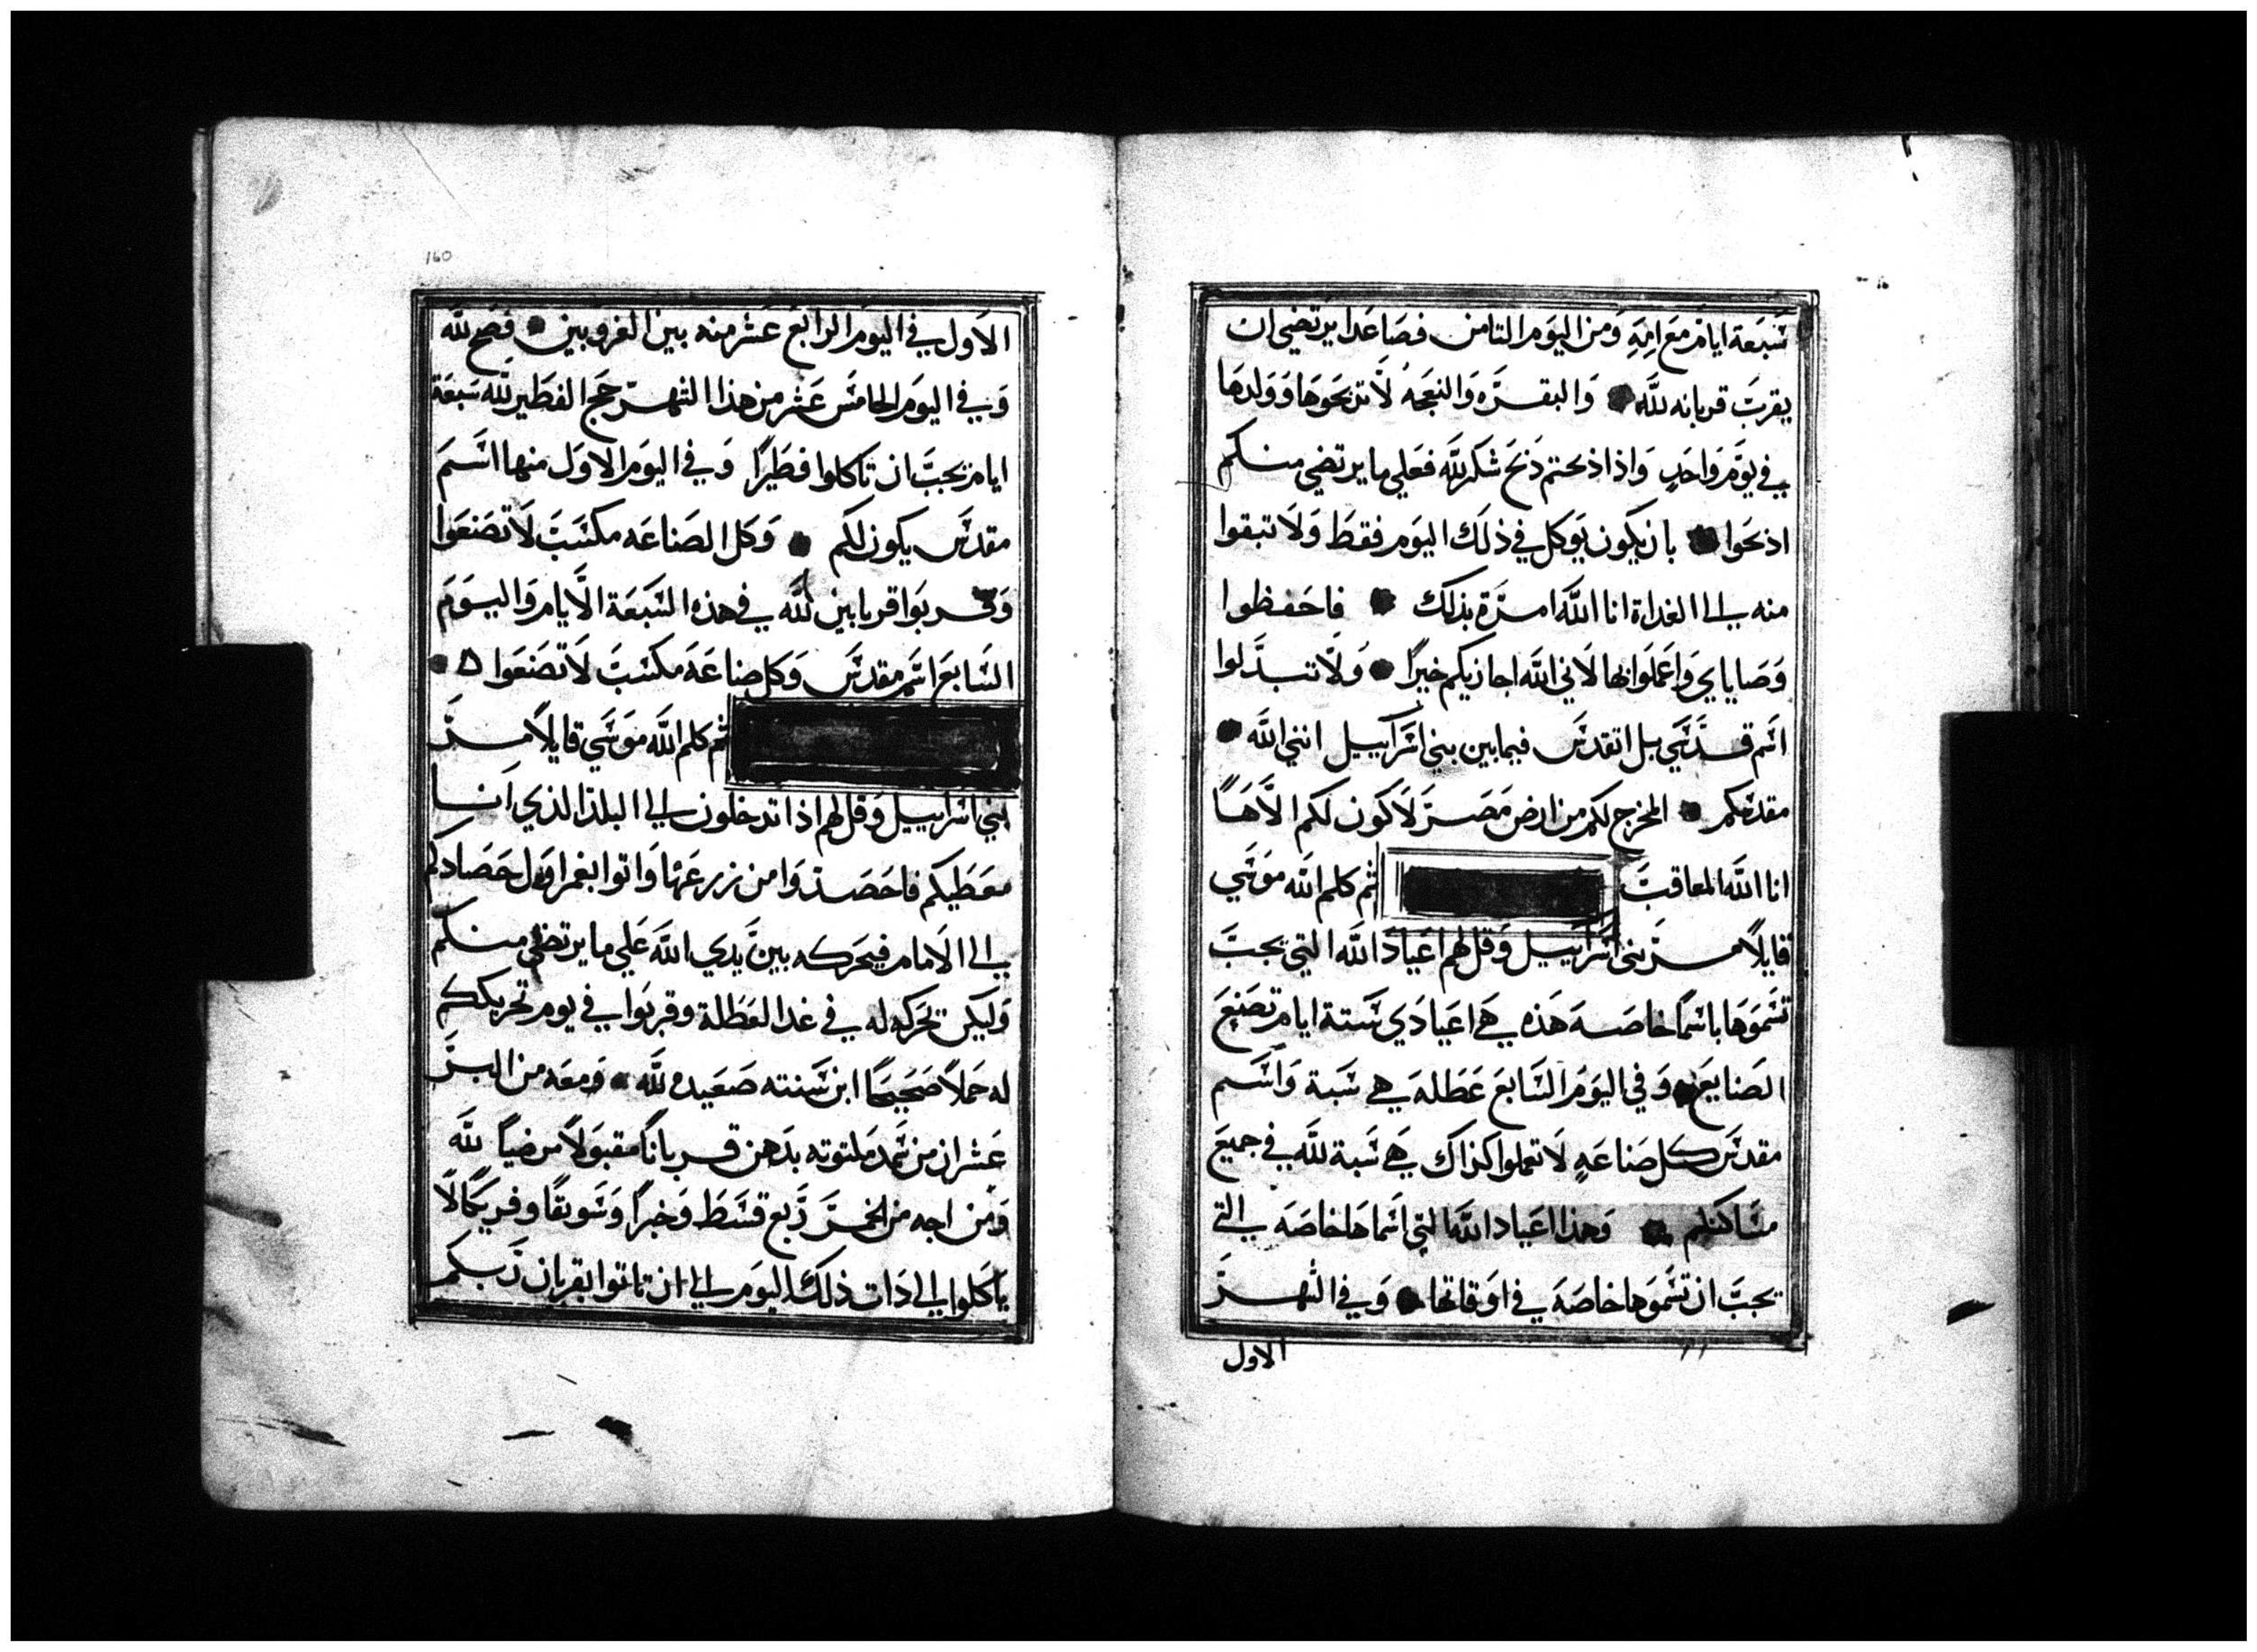 سبعة ايام مع امه ومن اليوم الثامن فصاعدا يرتضي ان
يقرب قربانه لله والبقره والنعجه لا تذبحوها وولدها
في يوم واحد واذا ذبحتم ذبح شكر لله فعلي ما يرتضي منكم
اذبحوا بان يكون يوكل في ذلك اليوم فقط ولا تبقوا
منه الي الغداة انا الله امرة بذلك فاحفظوا
وصاياي واعملوا بها لاني الله اجازيكم خيرا ولا تبدلوا
اسم قدسي بل اتقدس فيما بين بني اسراييل انني الله
مقدسكم المخرج لكم من ارض مصر لاكون لكم الاها
انا الله المعاقب ثم كلم الله موسي
قايلا مر بني اسراييل وقل لهم اعياد الله التي يجب
تسموها باسما خاصه هذه هي اعيادي ستة ايام تصنع
الصنايع وفي اليوم السابع عطله هي سبة واسم
مقدس كل صناعه لا تعملوا كذاك هي سبة لله في جميع
مساكنكم وهذا اعياد الله التي اسماها خاصه التي
يجب ان تسموها خاصه في اوقاتها وفي الشهر
الاول
160
الاول في اليوم الرابع عشر منه بين الغروبين فصح لله
وفي اليوم الخامس عشر من هذا الشهر حج الفطير لله سبعة
ايام يجب ان تاكلوا فطيرا وفي اليوم الاول منها اسم
مقدس يكون لكم وكل الصناعه مكسب لا تصنعوا
وقربوا قرابين لله في هذه السبعة الايام واليوم
السابع اسم مقدس وكل صناعه مكسب لا تصنعوا
ثم كلم الله موسي قايلا مر
بني اسراييل وقل لهم اذا تدخلون الي البلد الذي انا
معطيكم فاحصد وامن زرعها واتوا بغمر اول حصادكم
الي الامام فيحركه بين يدي الله علي ما يرتضي منكم
وليكن تحركه له في غد العطلة وقربوا في يوم تحريككم
له حملا صحيحا ابن سنته صعيده لله ومعه من البر
عشران من سمد ملتوته بدهن قربانا مقبولا مرضيا لله
ومن اجه من الخمر ربع قسط وخبزا وسويقا وفريكا لا
ياكلوا الي دات ذلك اليوم الي ان تاتوا بقربان ربكم